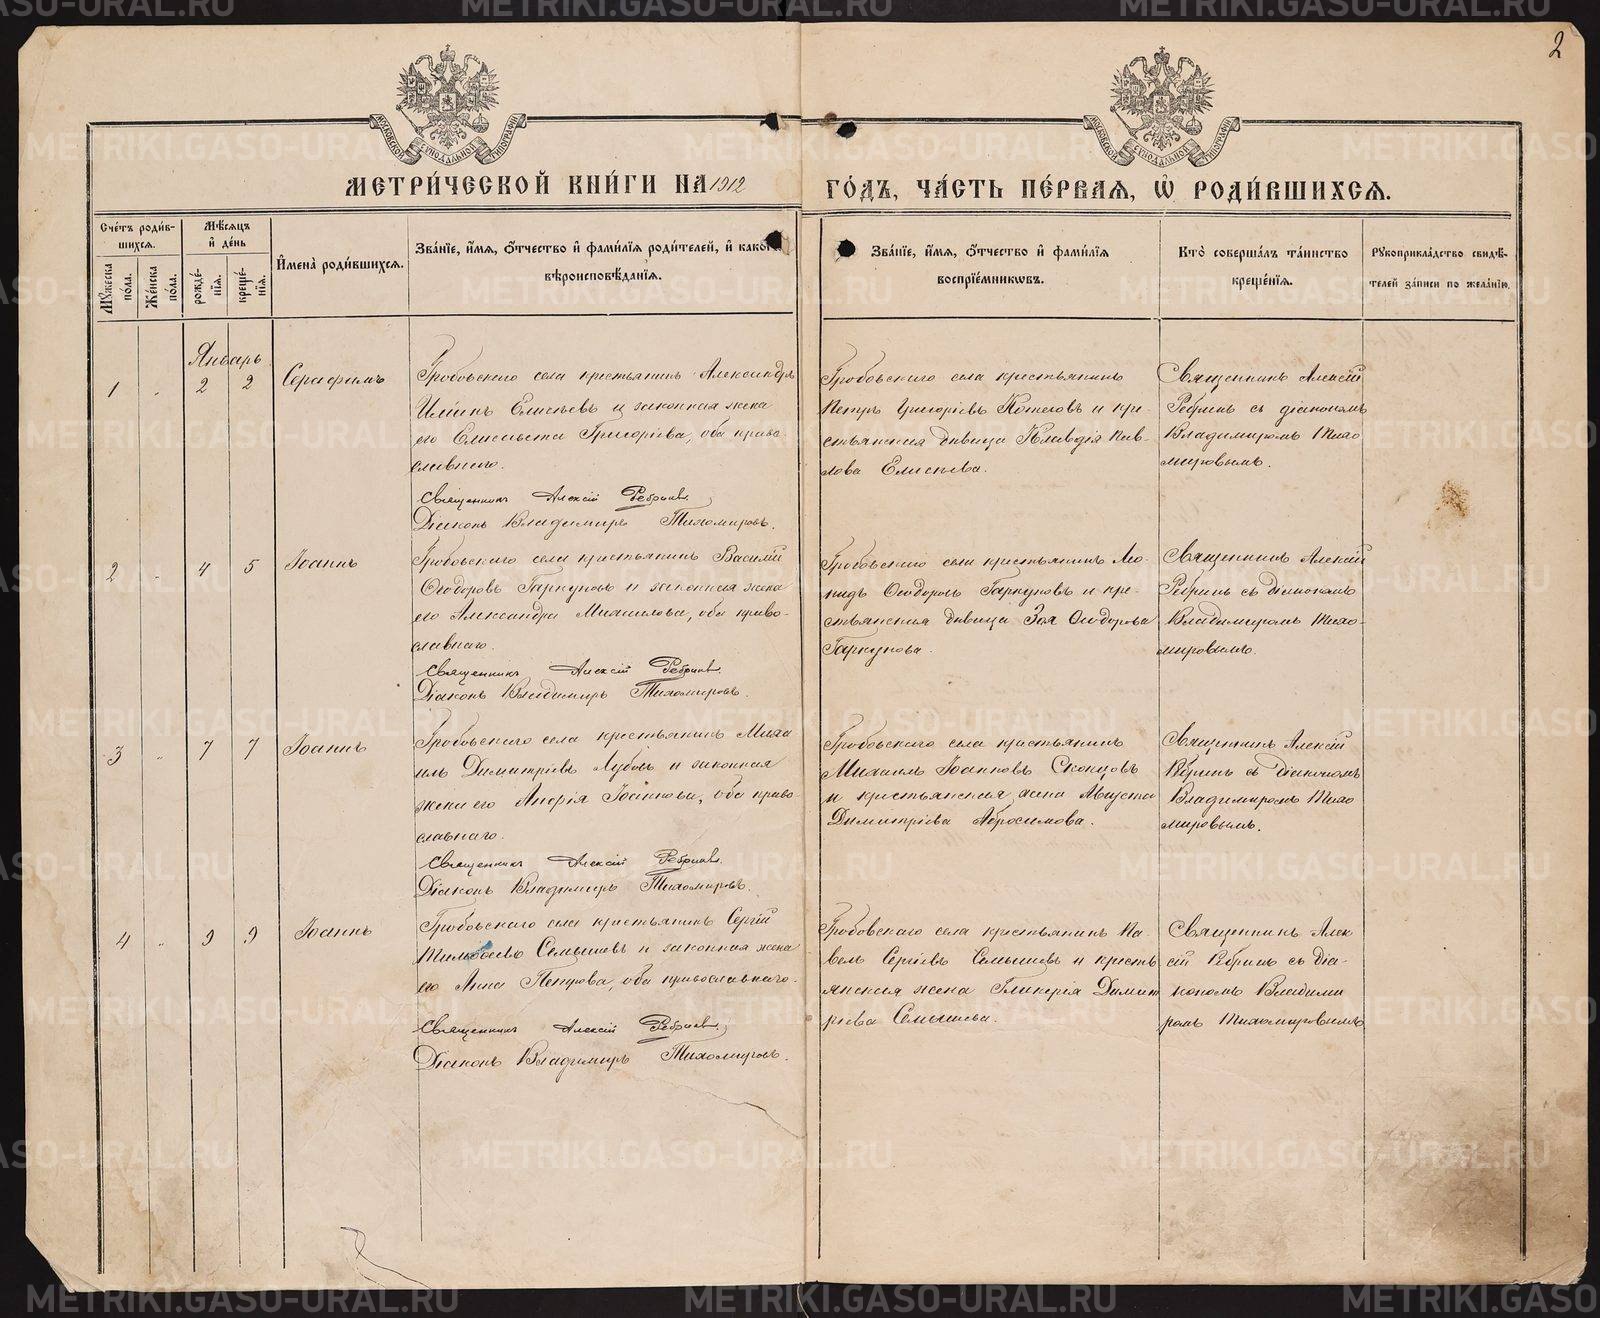 2
МОСКОВСКОЙ СѴНОДАЛЬНОЙ ТИПОГРАФІИ
МОСКОВСКОЙ СѴНОДАЛЬНОЙ ТИПОГРАФІИ
МЕТРИ́ЧЕСКОЙ КНИ́ГИ НА 1912
ГО́ДЪ, ЧА́СТЬ ПЕ́РВАЯ, Ѡ РОДИ́ВШИХСЯ.
Сче́тъ роди́в-
шихся.
Мꙋ́жеска по́ла.
Же́нска по́ла.
Мѣ́сяцъ
и де́нь
рожде́-
нїя.
креще́-
нїя.
И́мена̀ роди́вшихся.
Зва́нїе, и́мя, ѻ́тчество и фами́лїя роди́телей, и како́г
вѣроисповѣ́данїя.
Зва́нїе, и́мя, ѻ́тчество и фами́лїя
воспрїе́мникѡвъ.
Кто̀ соверша́лъ та́инство
креще́нїя.
Рꙋкоприкла́дство свидѣ́-
телей за́писи по жела́нїю.
Январь
1 " 2 2
Серафимъ
Гробовскаго села крестьянинъ Александръ
Ильинъ Елисѣевъ и законная жена
его Елисавета Григоріева, оба право-
славнаго.
Священникъ Алексій Ребринъ.
Діаконъ Владимиръ Тихомировъ.
Гробовскаго села крестьянинъ
Петръ Григоріевъ Котеговъ и кре-
стьянская дѣвица Клавдія Пав-
лова Елисѣева.
Священникъ Алексій
Ребринъ съ діакономъ
Владимиромъ Тихо
мировымъ.
2 " 4 5
Іоаннъ
Гробовскаго села крестьянинъ Василій
Ѳеодоровъ Гаркуновъ и законная жена
его Александра Михаилова, оба право-
славнаго.
Священникъ Алексій Ребринъ.
Діаконъ Владимиръ Тихомировъ.
Гробовскаго села крестьянинъ Лео-
нидъ Ѳеодоровъ Гаркуновъ и кре-
стьянская дѣвица Зоя Ѳеодорова
Гаркунова.
Священникъ Алексій
Ребринъ съ діакономъ
Владимиромъ Тихо-
мировымъ.
3 " 7 7
Іоаннъ
Гробовскаго села крестьянинъ Миха
илъ Димитріевъ Лубовъ и законная
жена его Марія Іоаннова, оба право-
славнаго.
Священникъ Алексій Ребринъ.
Діаконъ Владимиръ Тихомировъ.
Гробовскаго села крестьянинъ
Михаилъ Іоанновъ Скопцовъ
и крестьянская жена Августа
Димитріева Абросимова.
Священникъ Алексій
Ребринъ съ діакономъ
Владимиромъ Тихо
мировымъ.
4 " 9 9
Іоаннъ
Гробовскаго села крестьянинъ Сергій
Тимоѳеевъ Семышевъ и законная жена
его Анна Петрова, оба православнаго.
Священникъ Алексій Ребринъ
Діаконъ Владимиръ Тихомировъ.
Гробовскаго села крестьянинъ Па-
велъ Сергіевъ Семышевъ и кресть
янская жена Гликерія Димит
ріева Семышева.
Священникъ Алек
сій Ребринъ съ діа-
кономъ Владими
ромъ Тихомировымъ